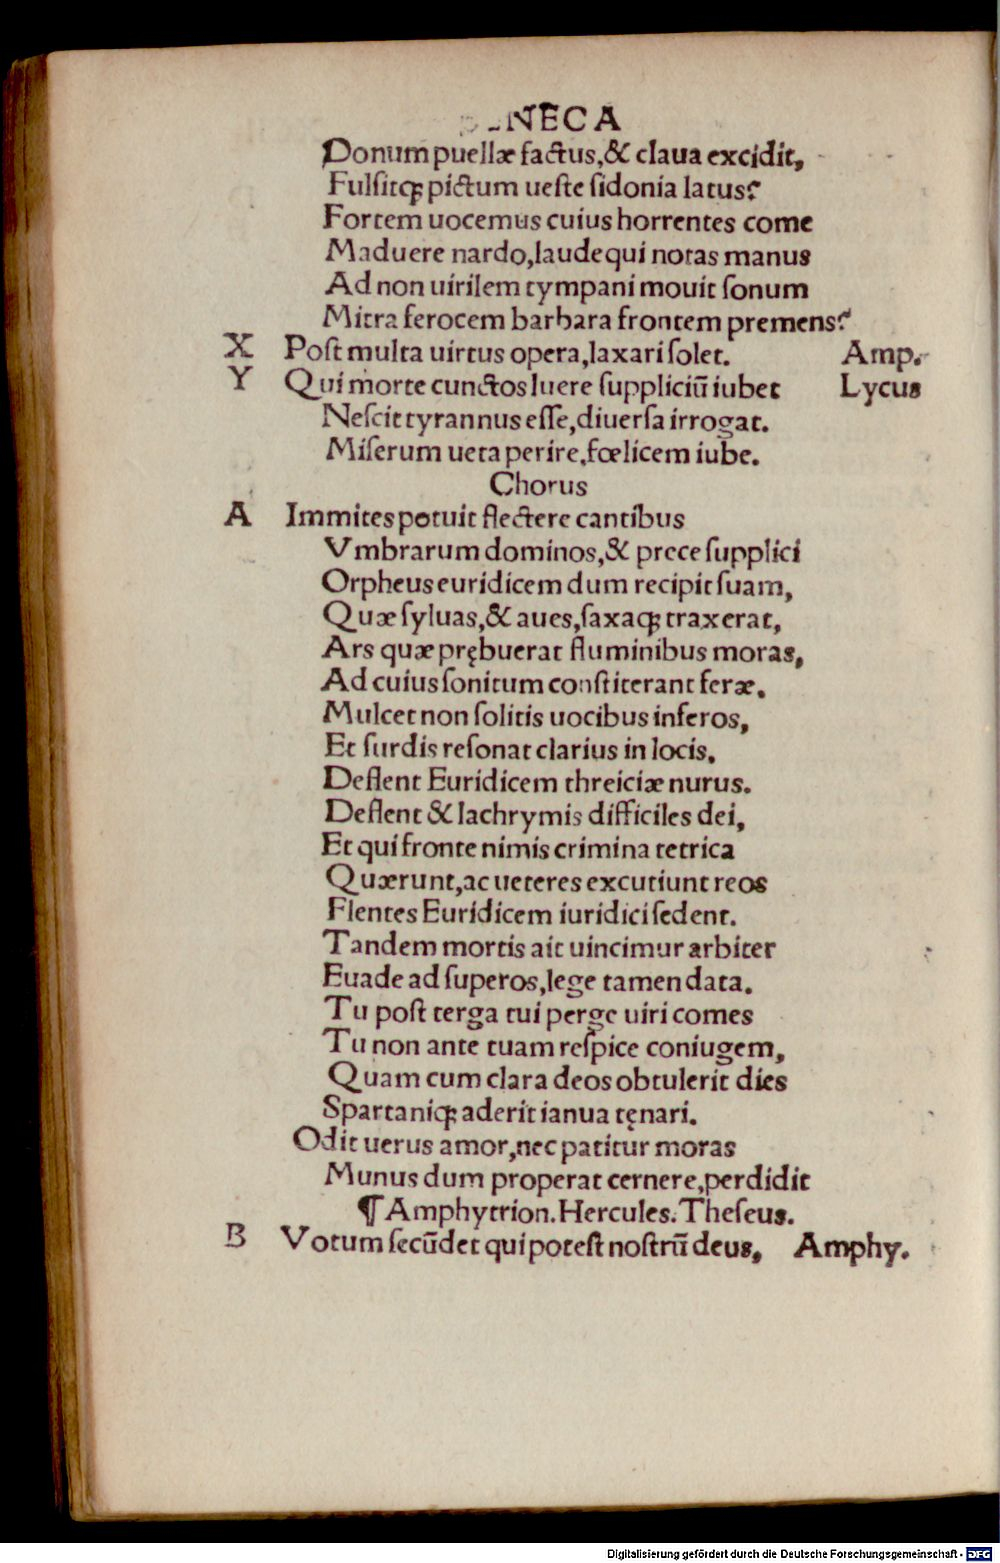 SENECA
Donum puellæ factus,& claua excidit,
Fulsitqꝫ pictum ueste sidonia latus?
Fortem uocemus cuius horrentes come
Maduere nardo,laude qui notas manus
Ad non uirilem tympani mouit sonum
Mitra ferocem barbara frontem premens?
X Post multa uirtus opera,laxari solet. Amp.
Y Qui morte cunctos luere suppliciū iubet Lycus
Nescit tyrannus esse,diuersa irrogat.
Miserum ueta perire,fœlicem iube.
Chorus
A Immites potuit flectere cantibus
Vmbrarum dominos,& prece supplici
Orpheus euridicem dum recipit suam,
Quæ syluas,& aues,saxaqꝫ traxerat,
Ars quæ prębuerat fluminibus moras,
Ad cuius sonitum constiterant feræ.
Mulcet non solitis uocibus inferos,
Et surdis resonat clarius in locis.
Deflent Euridicem threiciæ nurus.
Deflent & lachrymis difficiles dei,
Et qui fronte nimis crimina tetrica
Quærunt,ac ueteres excutiunt reos
Flentes Euridicem iuridici sedent.
Tandem mortis ait uincimur arbiter
Euade ad superos,lege tamen data.
Tu post terga tui perge uiri comes
Tu non ante tuam respice coniugem,
Quam cum clara deos obtulerit dies
Spartaniqꝫ aderit ianua tęnari.
Odit uerus amor,nec patitur moras
Munus dum properat cernere,perdidit
¶ Amphytrion.Hercules.Theseus.
B Votum secūdet qui potest nostrū deus, Amphy.
Digitalisierung gefördert durch die Deutsche Forschungsgemeinschaft - DFG